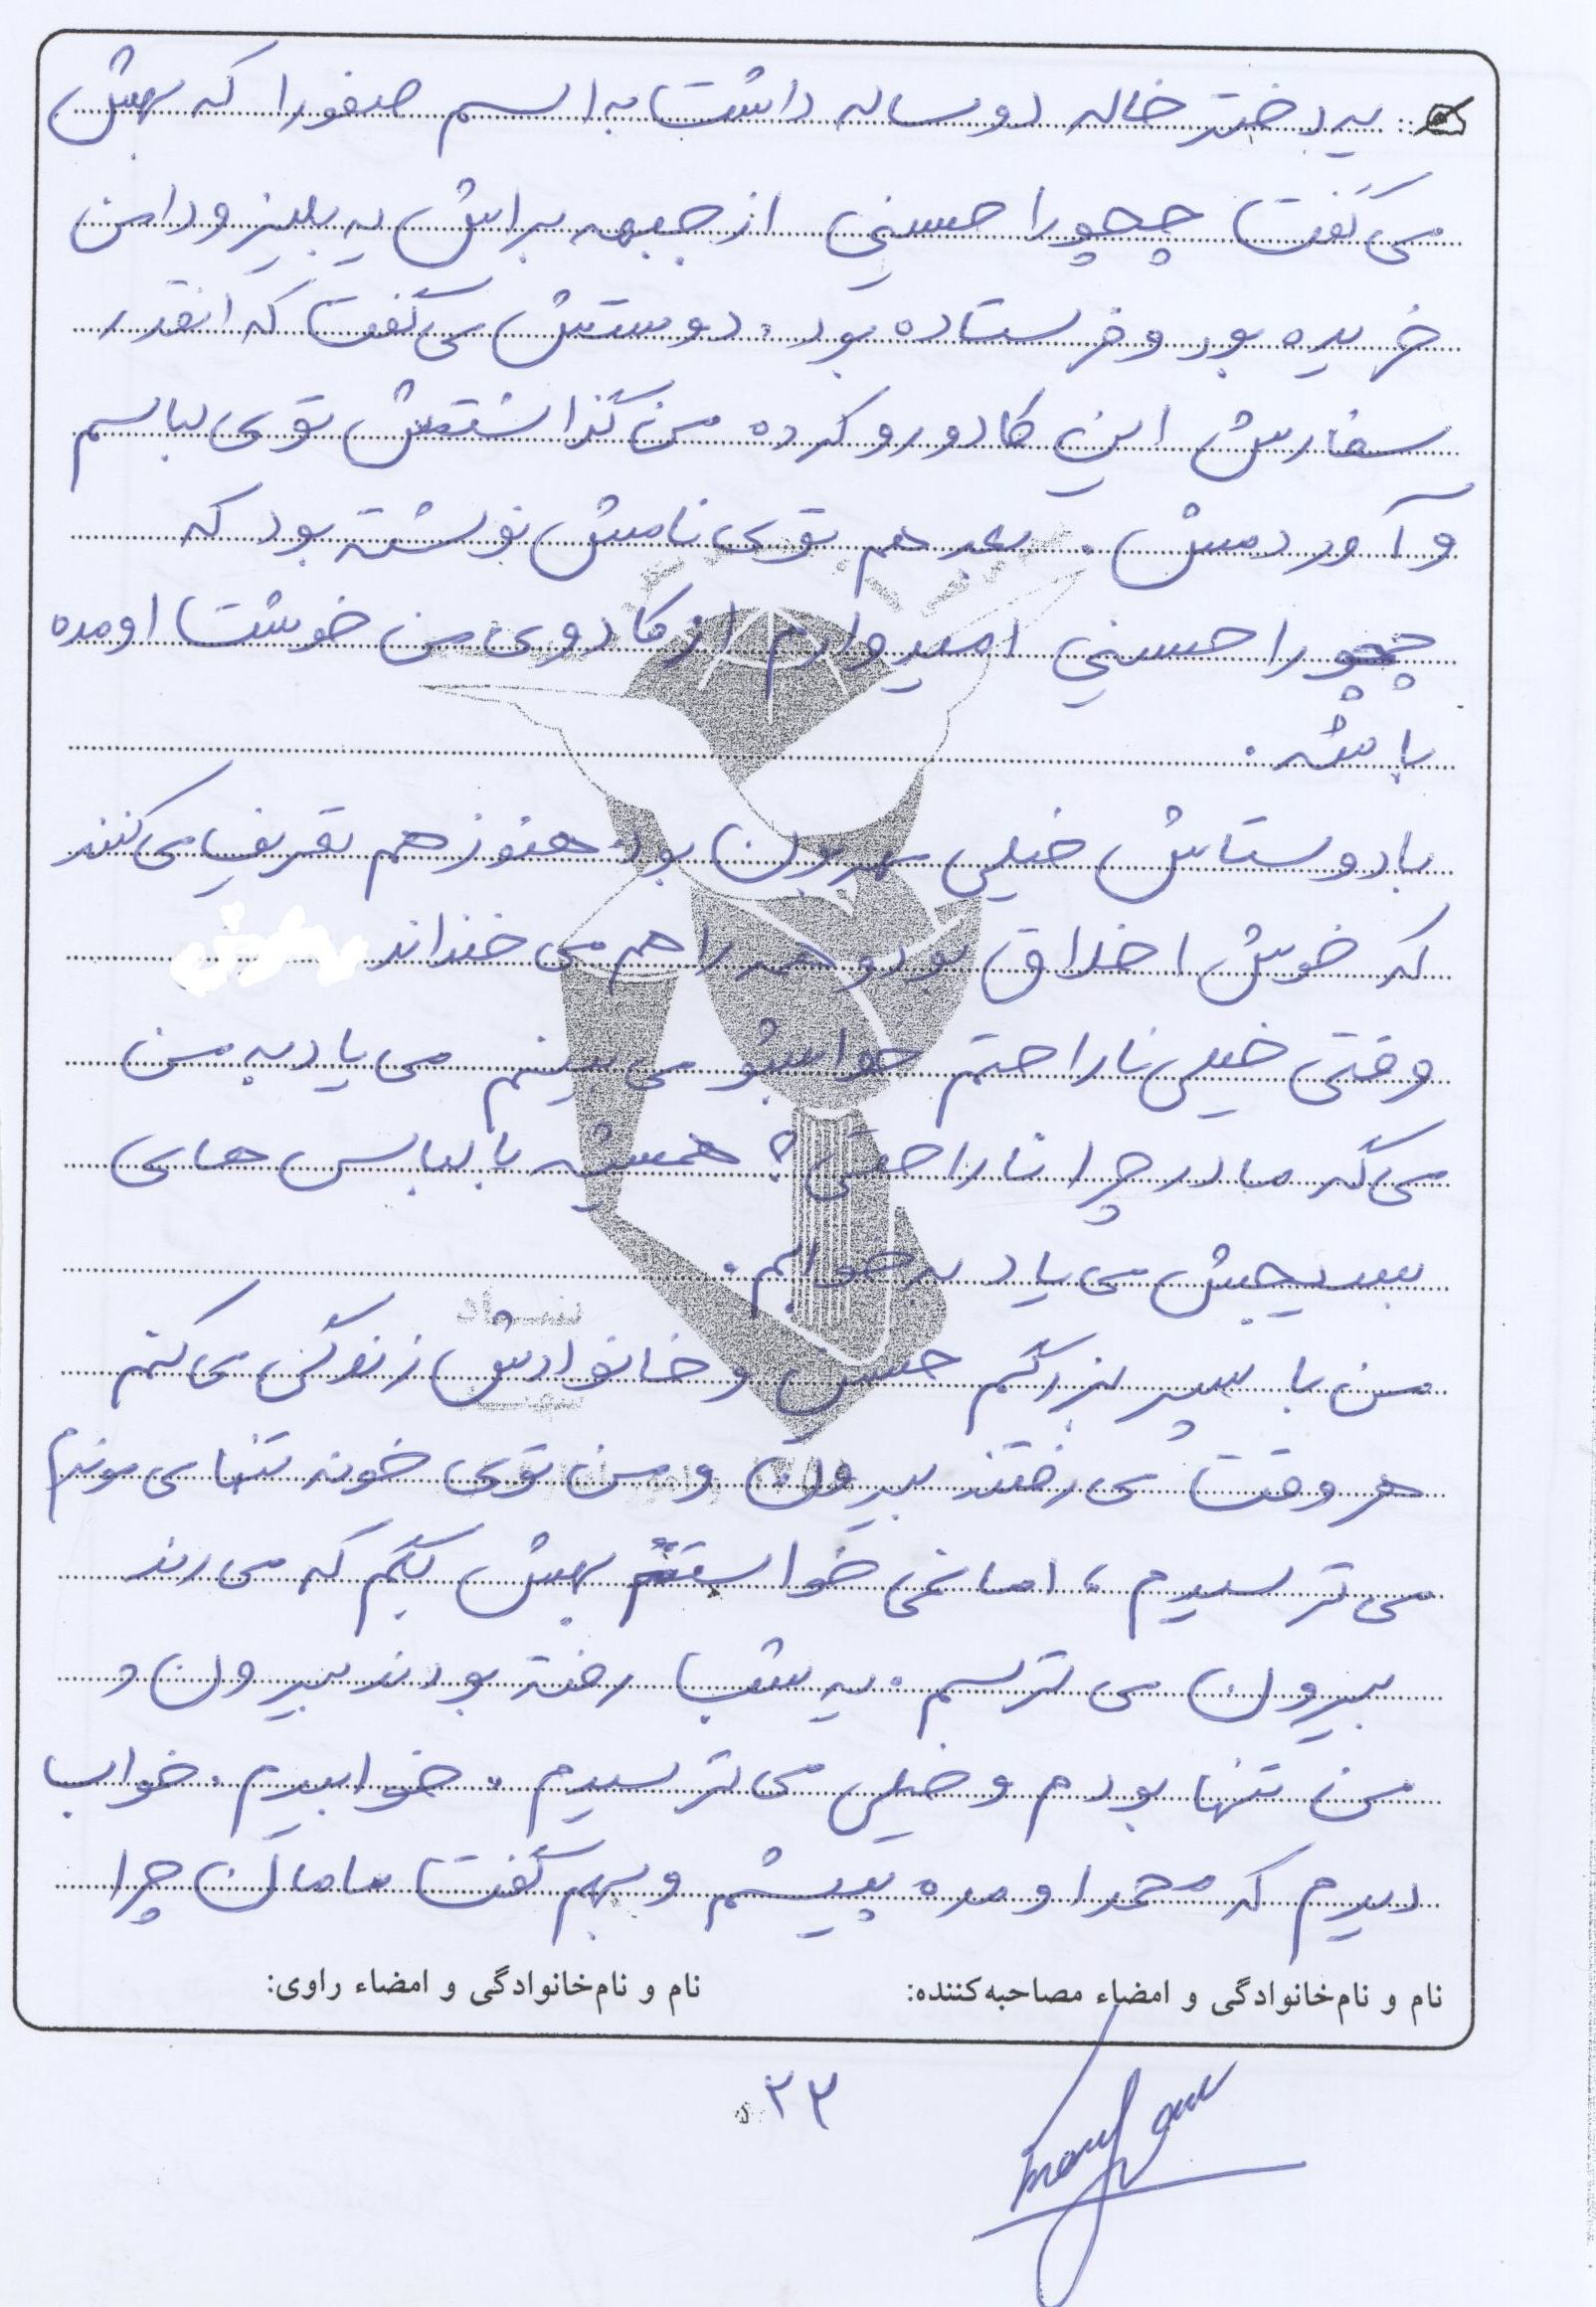 یه دختر خاله دو ساله داشت به اسم صفورا که بهش
می گفت چچورا حسنی از جبهه براش یه بلیز و دامن
خریده بود و فرستاده بود. دوستش می گفت که انقدر
سفارش این کادو رو کرده من گذاشتمش توی لباسم
و آوردمش. بعد هم توی نامش نوشته بود که
چچورا حسنی امیدوارم از کادوی من خوشت اومده
باشه.
با دوستاش خیلی مهربون بود هنوز هم تعریف می کنند
که خوش اخلاق بود و همه را هم می خنداند
وقتی خیلی ناراحتم خوابشو می بینم می یاد به من
می گه مادر چرا ناراحتی؟ همیشه با لباس های
بسیجیش می یاد به خوابم.
من با پسر بزرگم حسن و خانوادش زندگی می کنم
هر وقت می رفتند بیرون و من توی خونه تنها می موندم
می ترسیدم، اما نمی خواستم بهش بگم که می رند
بیرون می ترسم. یه شب رفته بودند بیرون و
من تنها بودم و خیلی می ترسیدم. خوابیدم. خواب
دیدم که محمد اومده پیشم و بهم گفت مامان چرا
نام و نام‌خانوادگی و امضاء مصاحبه‌کننده: نام و نام‌خانوادگی و امضاء راوی:
۲۳